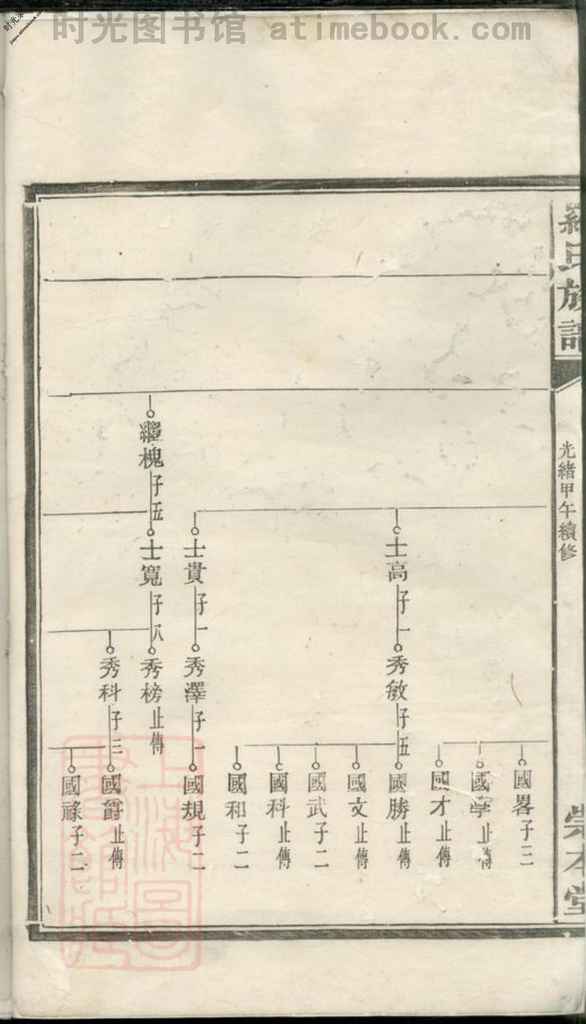 时光图书馆 atimebook.com
氏族譜
光緒甲午續修
崇本堂
國畧子三
國學止傳
國才止傳
士高子一
秀敏子五
國勝止傳
國文止傳
國武子二
國科止傳
國和子二
士貴子一
秀澤子一
國規子二
繼槐子五
士寬子八
秀榜止傳
秀科子三
國爵止傳
國祿子二